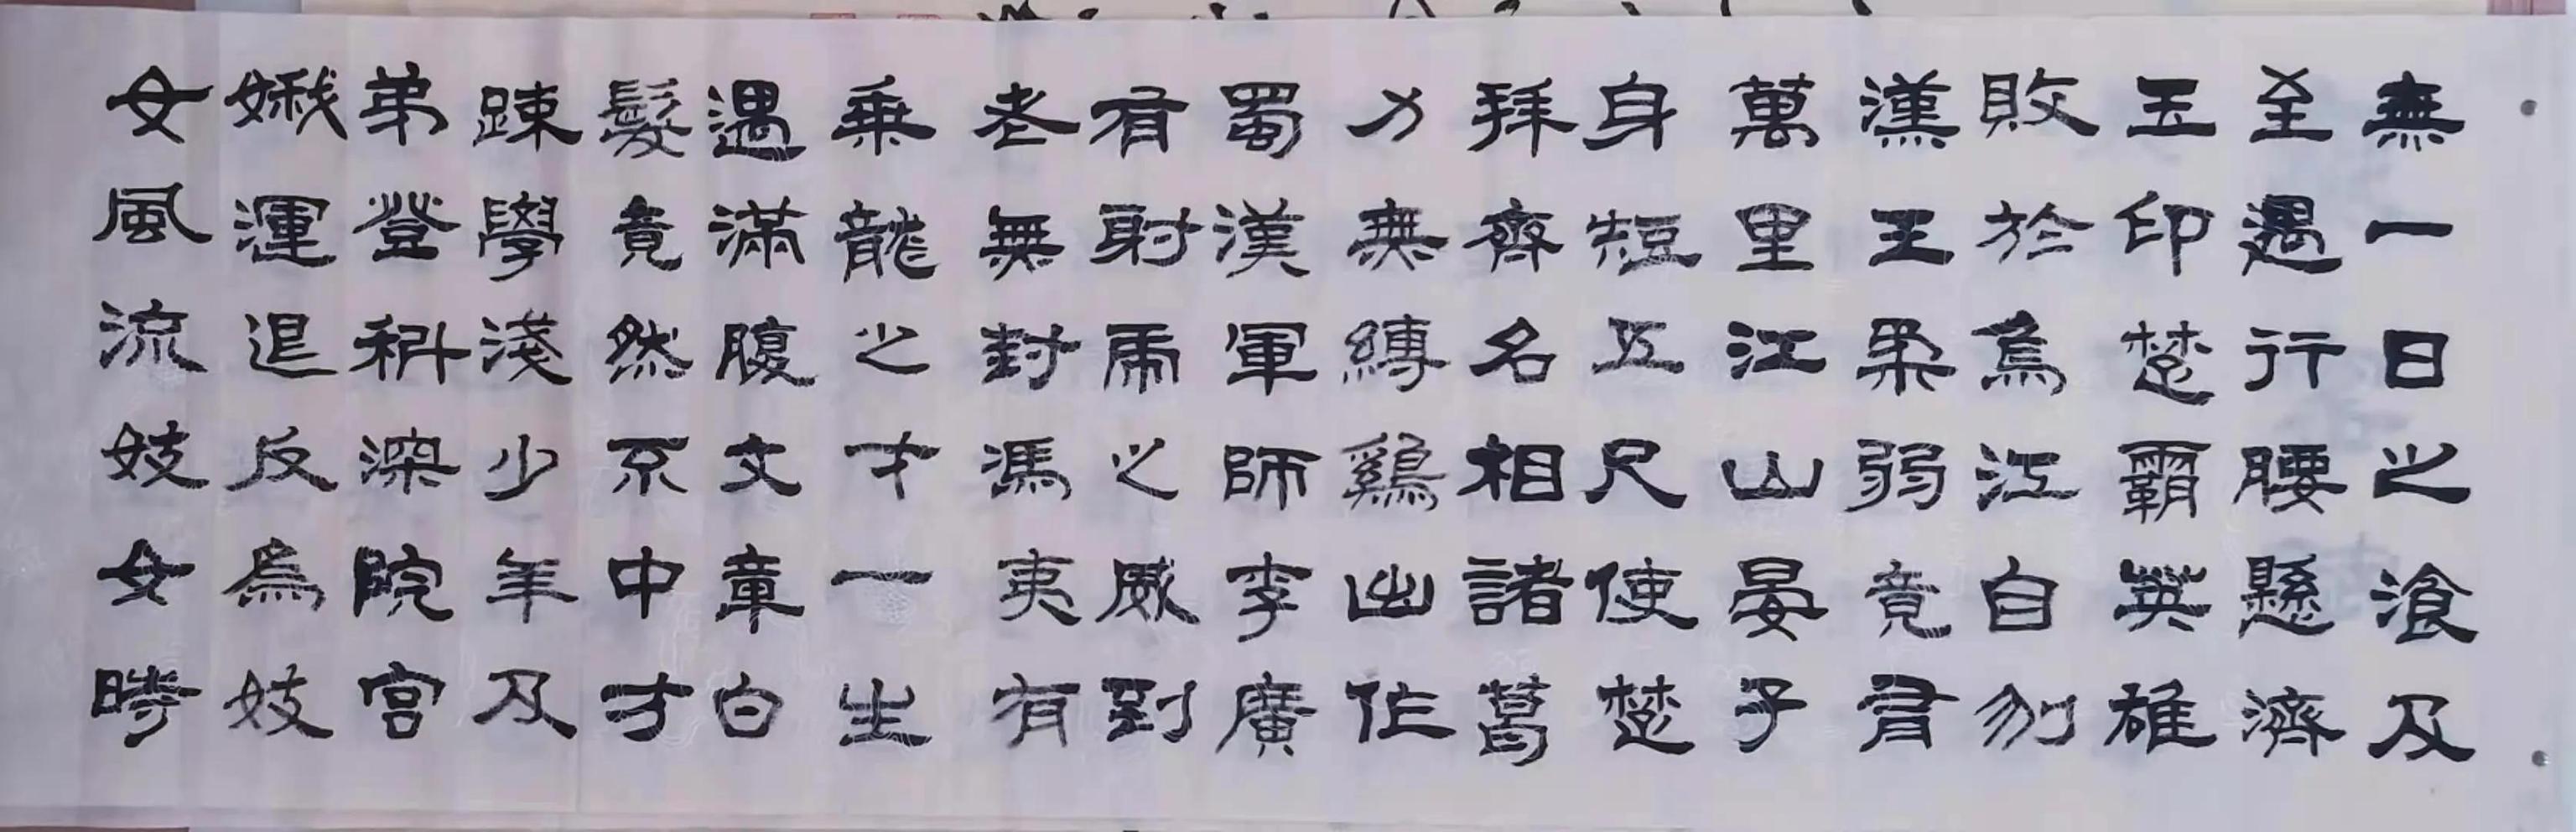 無一日之飡及
至遇行腰懸濟
玉印楚霸英雄
敗於烏江自刎
漢王柔弱竟有
萬里江山晏子
身短五尺使楚
拜齊名相諸葛
力無縛鷄出作
蜀漢軍師李廣
有射虎之威到
老無封馮夷有
乗龍之才一生
遇滿腹文章白
髮竟然不中才
踈學淺少年及
弟登科深院宮
娥運退反為妓
女風流妓女時